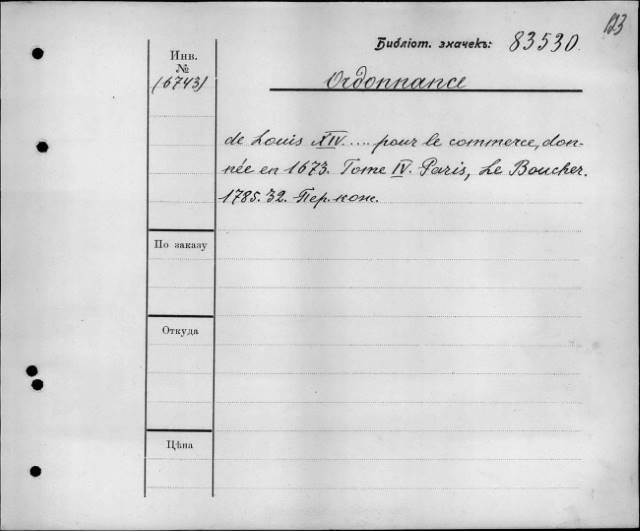 123
Библіот. значекъ: 83530.
Инв.
№
(6743)
Ordonnance
de Louis XIV..... pour le commerce, don-
née en 1673. Tome IV. Paris, Le Boucher.
1785. 32. Пер. кож.
По заказу
Откуда
Цѣна